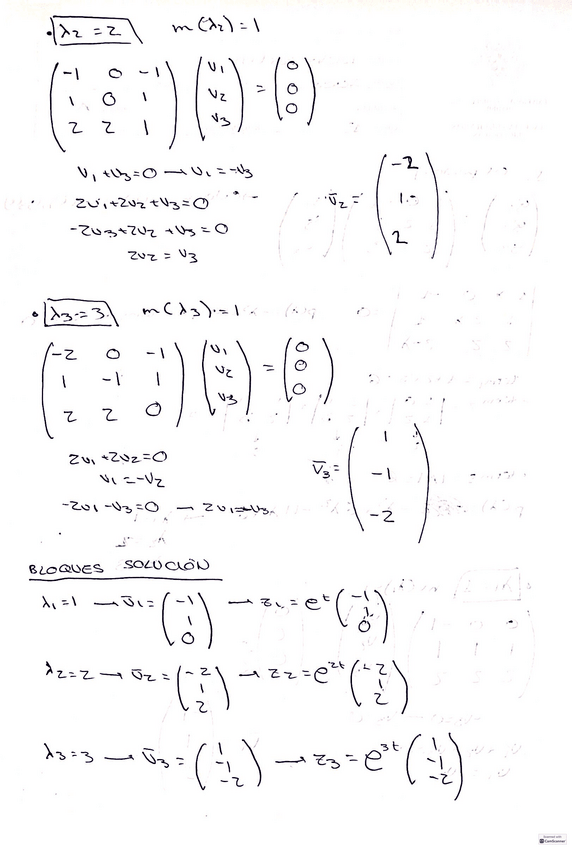 • λ2 = 2 m(λ2) = 1
( -1 0 -1 ) ( v1 ) ( 0 )
( 1 0 1 ) ( v2 ) = ( 0 )
( 2 2 1 ) ( v3 ) ( 0 )
v1 + v3 = 0 → v1 = -v3
2v1 + 2v2 + v3 = 0
-2v3 + 2v2 + v3 = 0
2v2 = v3
v̄2 = ( -2 1 2 )
• λ3 = 3 m(λ3) = 1
( -2 0 -1 ) ( v1 ) ( 0 )
( 1 -1 1 ) ( v2 ) = ( 0 )
( 2 2 0 ) ( v3 ) ( 0 )
2v1 + 2v2 = 0
v1 = -v2
-2v1 - v3 = 0 → 2v1 = -v3
v̄3 = ( 1 -1 -2 )
BLOQUES SOLUCIÓN
λ1 = 1 → v̄1 = ( -1 1 0 ) → z1 = e^t ( -1 1 0 )
λ2 = 2 → v̄2 = ( -2 1 2 ) → z2 = e^2t ( -2 1 2 )
λ3 = 3 → v̄3 = ( 1 -1 -2 ) → z3 = e^3t ( 1 -1 -2 )
CamScanner